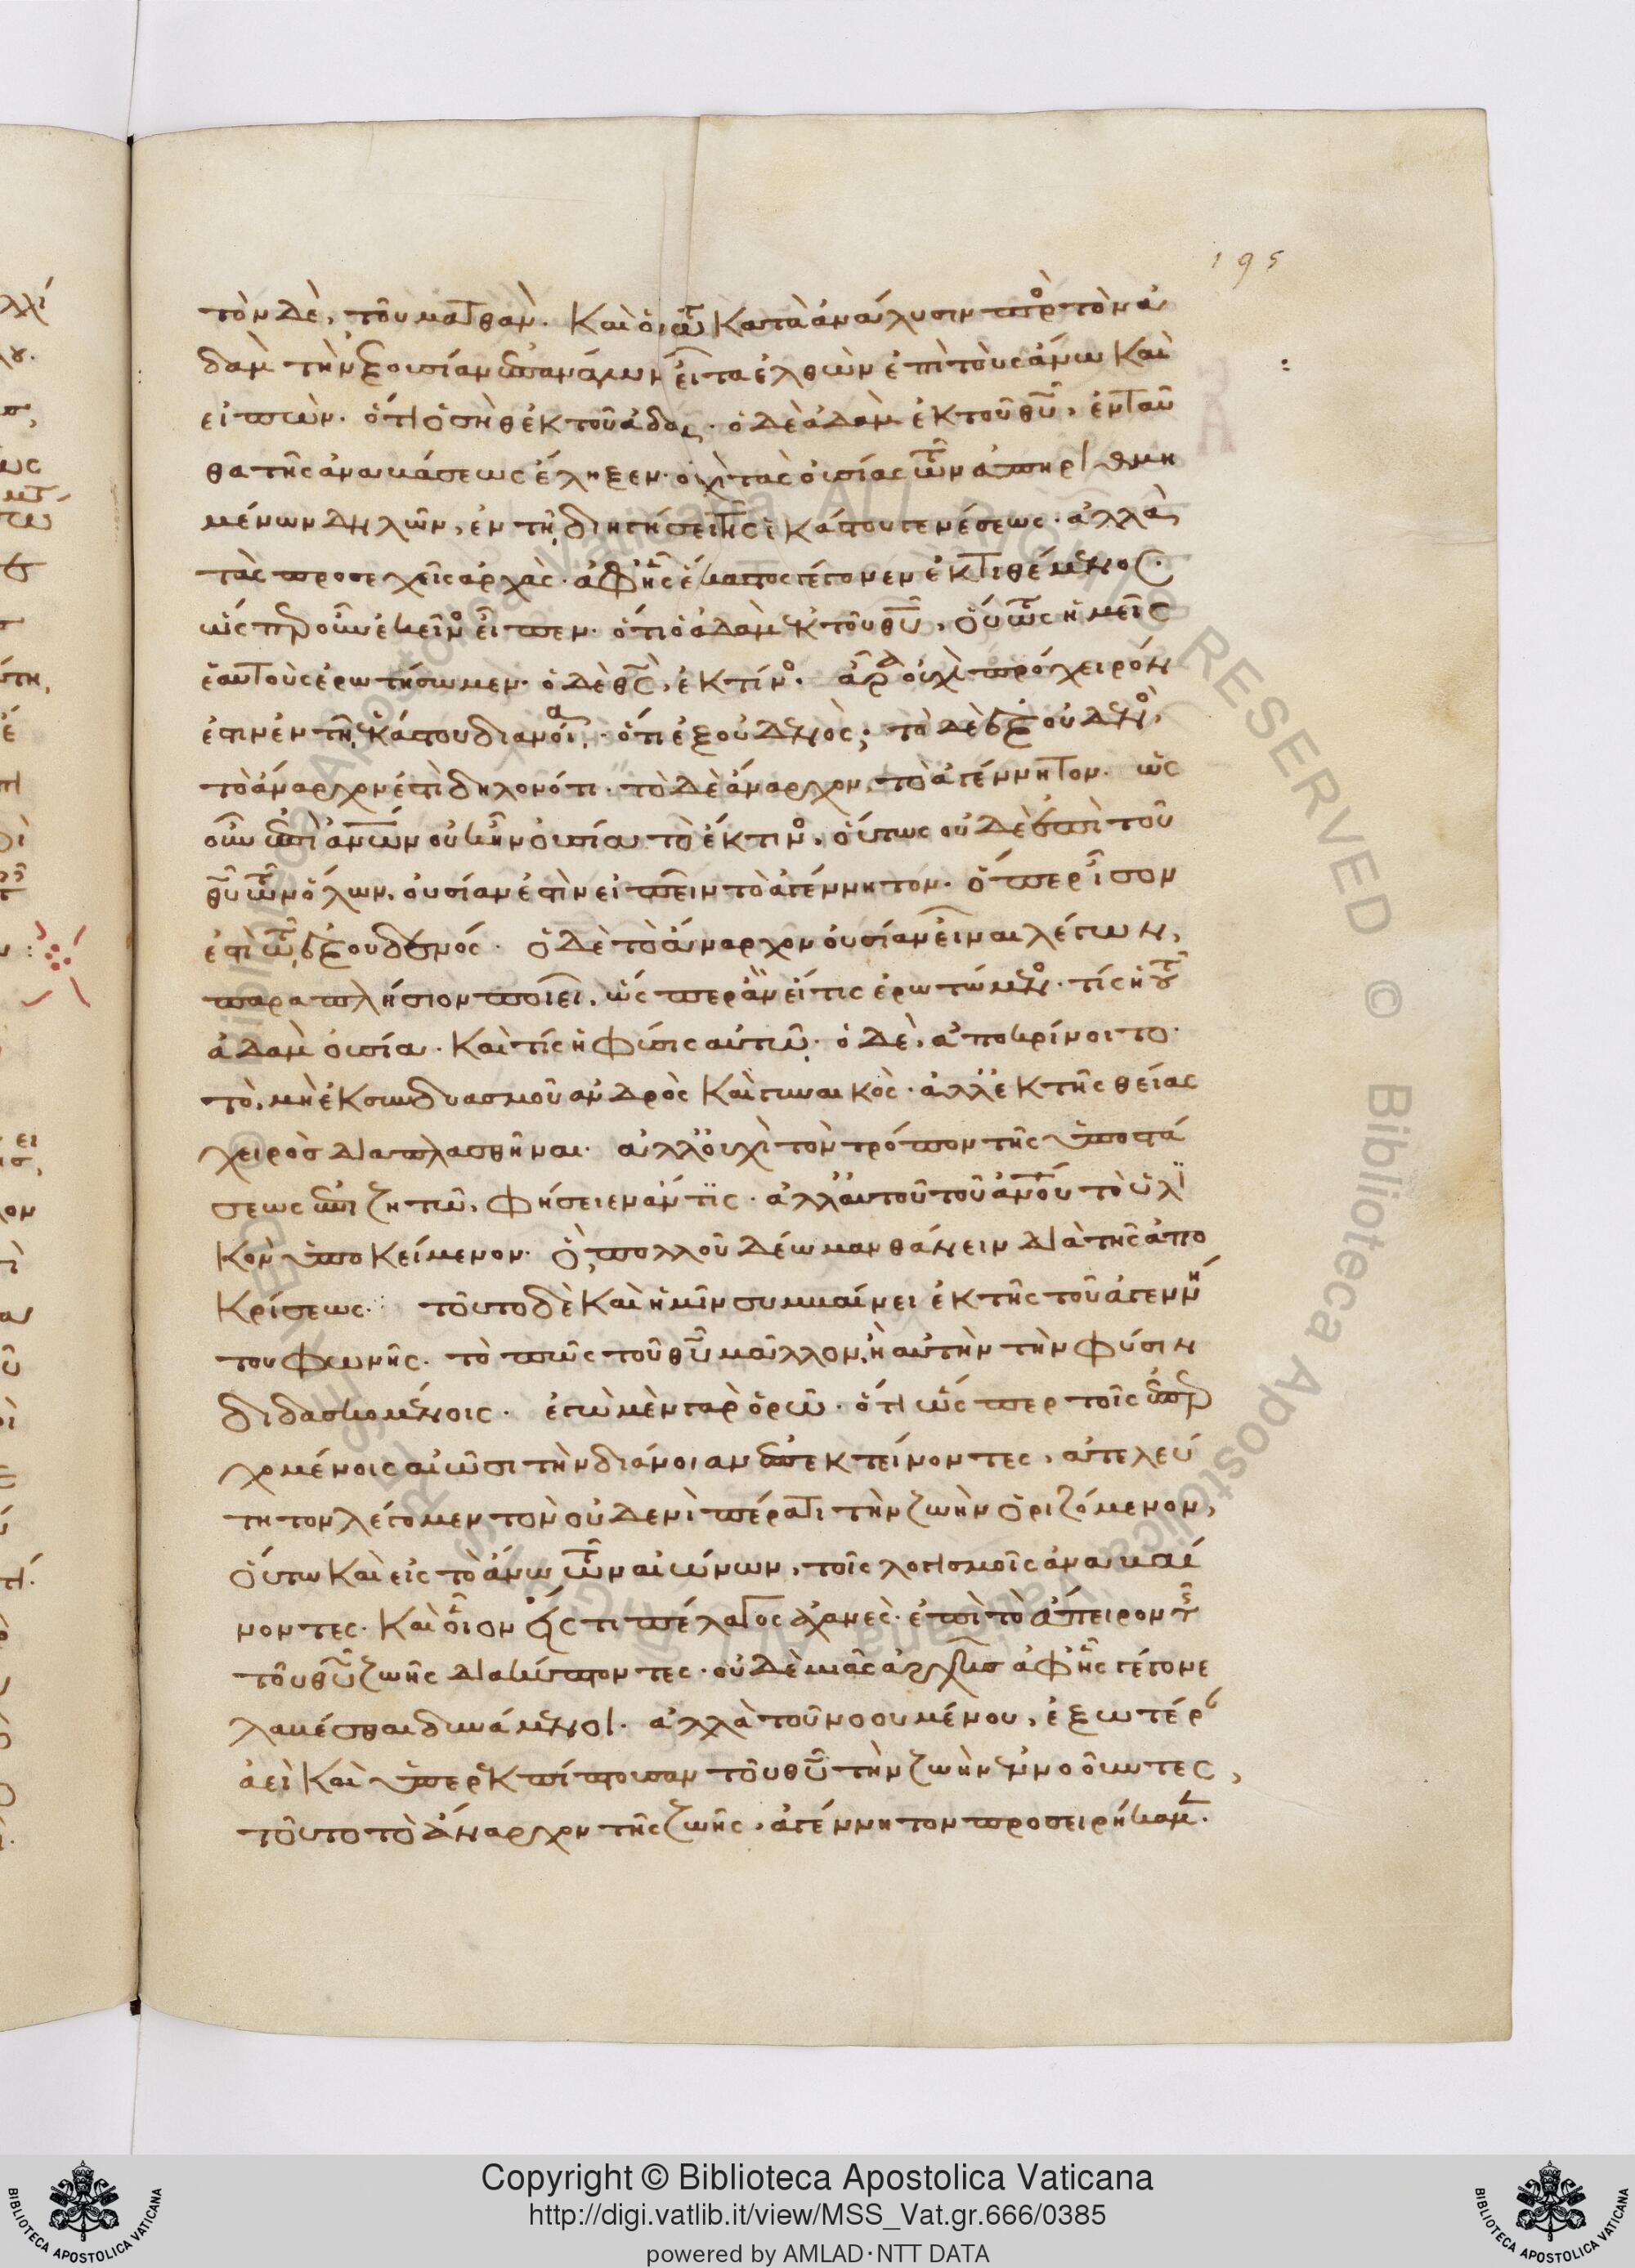 195
τὸν δὲ, τοῦ ματθάν. καὶ οὕτω κατὰ ἀνάλυσιν πρὸς τὸν ἀ
δὰμ τὴν ἐξουσίαν ἐπανάγων εἶτα ἐλθὼν ἐπὶ τοὺς ἄνω καὶ
εἰπὼν. ὅτι ὁ σὴθ ἐκ τοῦ ἀδάμ. ὁ δὲ ἀδὰμ ἐκ τοῦ θυ, ἐνταῦ
θα τῆς ἀναβάσεως ἔληξεν. οὐχὶ τὰς οὐσίας τῶν ἀπηριθμη
μένων δηλῶν, ἐν τῇ διηγήσει τῆς ἑκάστου γενέσεως. ἀλλὰ
τὰς προσεχεῖς ἀρχὰς. ἀφ' ἧς ἕκαστος γέγονεν ἐκτιθέμενος.
ὥσπερ οὖν ἐκεῖνος εἶπεν. ὅτι ὁ ἀδὰμ ἐκ τοῦ θυ, οὕτως ἡμεῖς
ἑαυτοὺς ἐρωτήσωμεν. ὁ δὲ θς, ἐκ τίνος. ἆρα οὐχὶ πρόχειρόν
ἐστιν ἐν τῇ ἑκάστου διανοίᾳ. ὅτι ἐξ οὐδενός; τὸ δὲ ἐξ οὐδενὸς,
τὸ ἄναρχον ἐστὶ δηλονότι. τὸ δὲ ἄναρχον, τὸ ἀγέννητον. ὡς
οὖν ἐπὶ ἀνων οὐκ ἦν οὐσία τὸ ἔκ τινος, οὕτως οὐδὲ ἐπὶ τοῦ
θυ τῶν ὅλων, οὐσίαν ἐστὶν εἰπεῖν τὸ ἀγέννητον. ὅπερ ἴσον
ἐστὶ τῷ ἐξ οὐδενός. ὁ δὲ τὸ ἄναρχον οὐσίαν εἶναι λέγων,
παραπλήσιον ποιεῖ, ὥσπερ ἂν εἴ τις ἐρωτώμενος. τίς ἡ τοῦ
ἀδὰμ οὐσία. καὶ τίς ἡ φύσις αὐτῷ. ὁ δὲ, ἀποκρίνοιτο.
τὸ, μὴ ἐκ συνδυασμοῦ ἀνδρὸς καὶ γυναικὸς. ἀλλ' ἐκ τῆς θείας
χειρὸς διαπλασθῆναι. ἀλλ' οὐχὶ τὸν τρόπον τῆς ὑποστά
σεως ἐπιζητῶ, φήσειεν ἄν τις. ἀλλ' αὐτοῦ τοῦ ἀνου τὸ ὑλι
κὸν ὑποκείμενον. ὃ, πολλοῦ δέω μανθάνειν διὰ τῆς ἀπο
κρίσεως. τοῦτο δὲ καὶ ἡμῖν συμβαίνει ἐκ τῆς τοῦ ἀγεννή
του φωνῆς. τὸ πῶς τοῦ θυ μᾶλλον, ἢ αὐτὴν τὴν φύσιν
διδασκομένοις. ἐγὼ μὲν γὰρ ὁρῶ. ὅτι ὥσπερ τοῖς ἐπερ
χομένοις αἰῶσι τὴν διάνοιαν ἐπεκτείνοντες, ἀτελεύ
τητον λέγομεν τὸν οὐδενὶ πέρατι τὴν ζωὴν ὁριζόμενον,
οὕτω καὶ εἰς τὸ ἄνω τῶν αἰώνων, τοῖς λογισμοῖς ἀναβαί
νοντες. καὶ οἷον ὥς τι πέλαγος ἀχανὲς. ἐπὶ τὸ ἄπειρον τῆς
τοῦ θυ ζωῆς διακύπτοντες. οὐδὲ μιᾶς ἀρχῆς ἀφ' ἧς γέγονε
λαβέσθαι δυνάμενοι. ἀλλὰ τοῦ νοουμένου, ἐξωτέρω
ἀεὶ καὶ ὑπερεκπίπτουσαν τοῦ θυ τὴν ζωὴν ἐννοοῦντες,
τοῦτο τὸ ἄναρχον τῆς ζωῆς, ἀγέννητον προσειρήκαμεν.
Copyright © Biblioteca Apostolica Vaticana
http://digi.vatlib.it/view/MSS_Vat.gr.666/0385
powered by AMLAD·NTT DATA